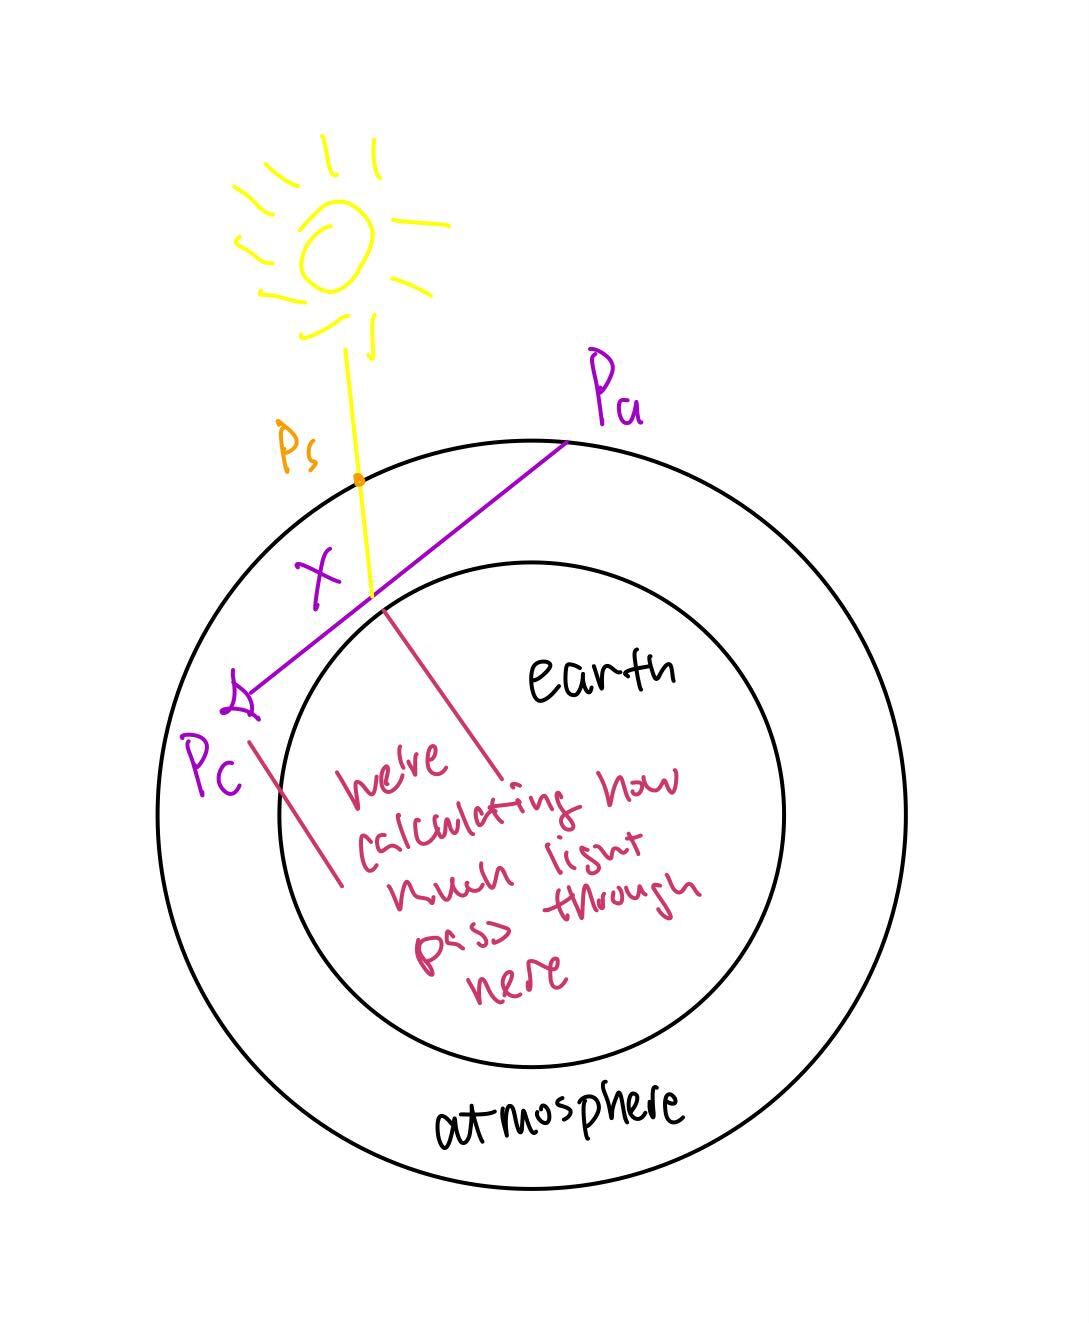 Pa
Ps
X
earth
Pc
we're
calculating how
much light
pass through
here
atmosphere